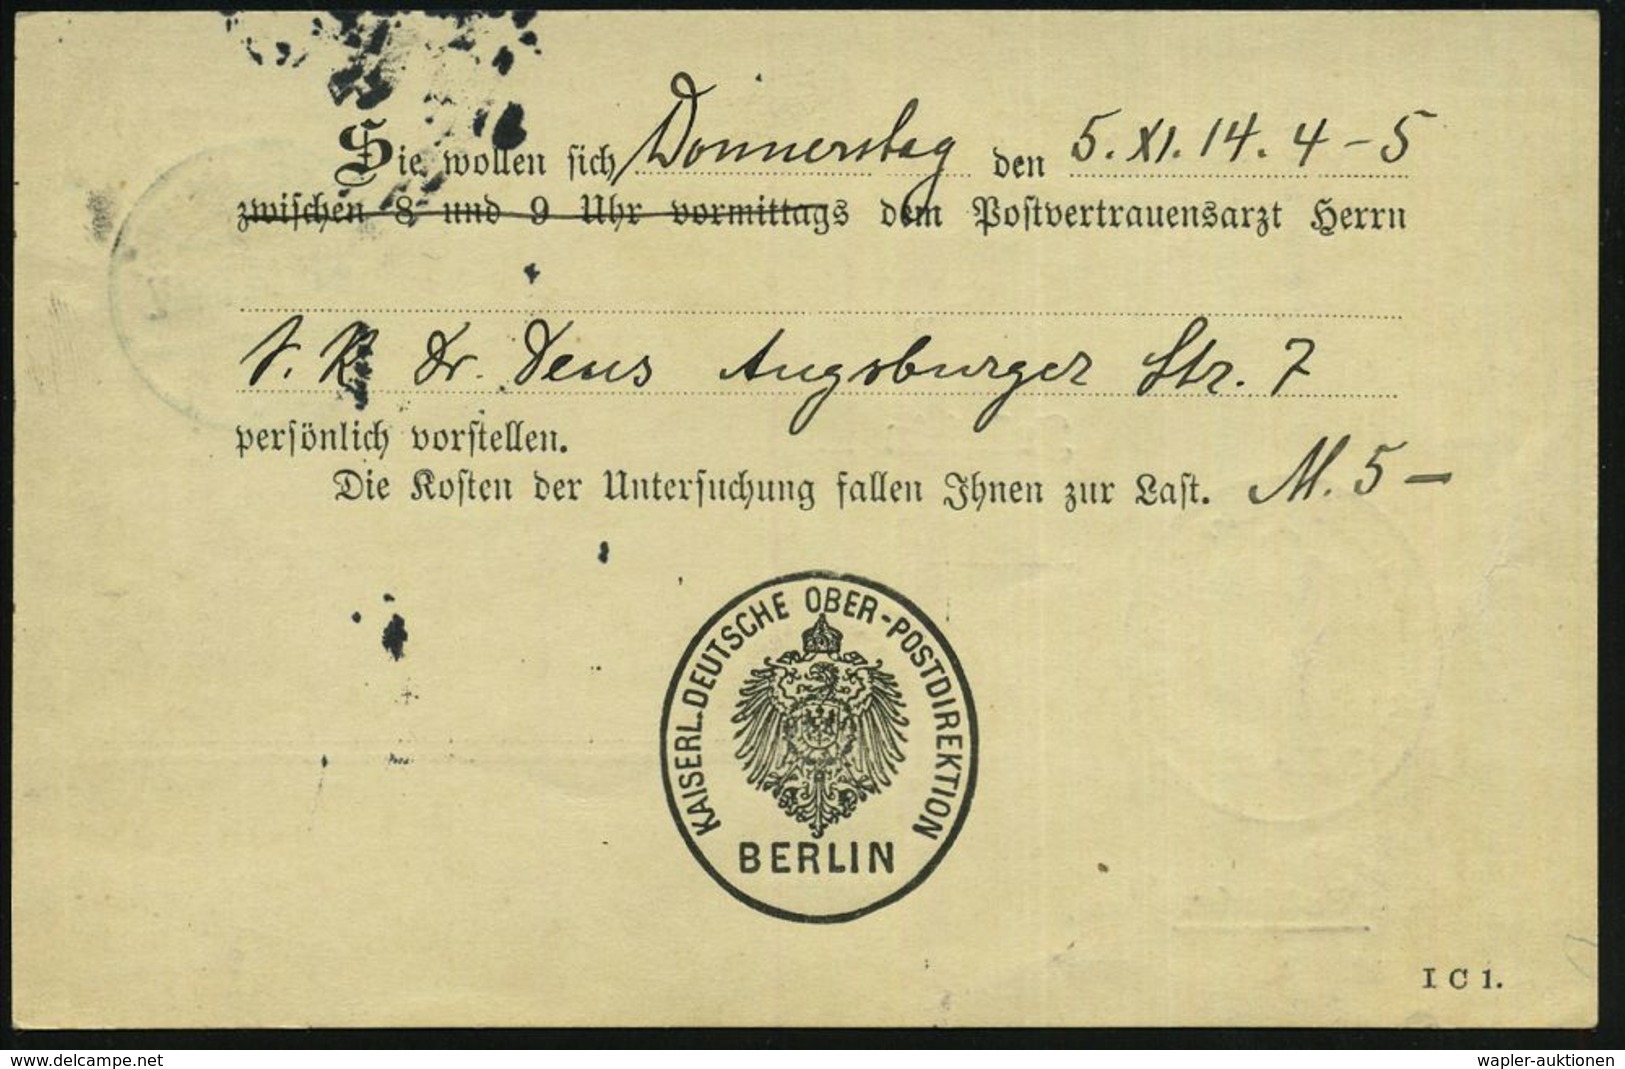 Sie wollen sich Donnerstag den 5. XI. 14. 4 – 5
zwischen 8 und 9 Uhr vormittags dem Postvertrauensarzt Herrn
S. R. Dr. Deus Augsburger Str. 7
persönlich vorstellen.
Die Kosten der Untersuchung fallen Ihnen zur Last. M. 5 –
KAISERL. DEUTSCHE OBER-POSTDIREKTION
BERLIN
I C 1.
www.delcampe.net
wapler-auktionen